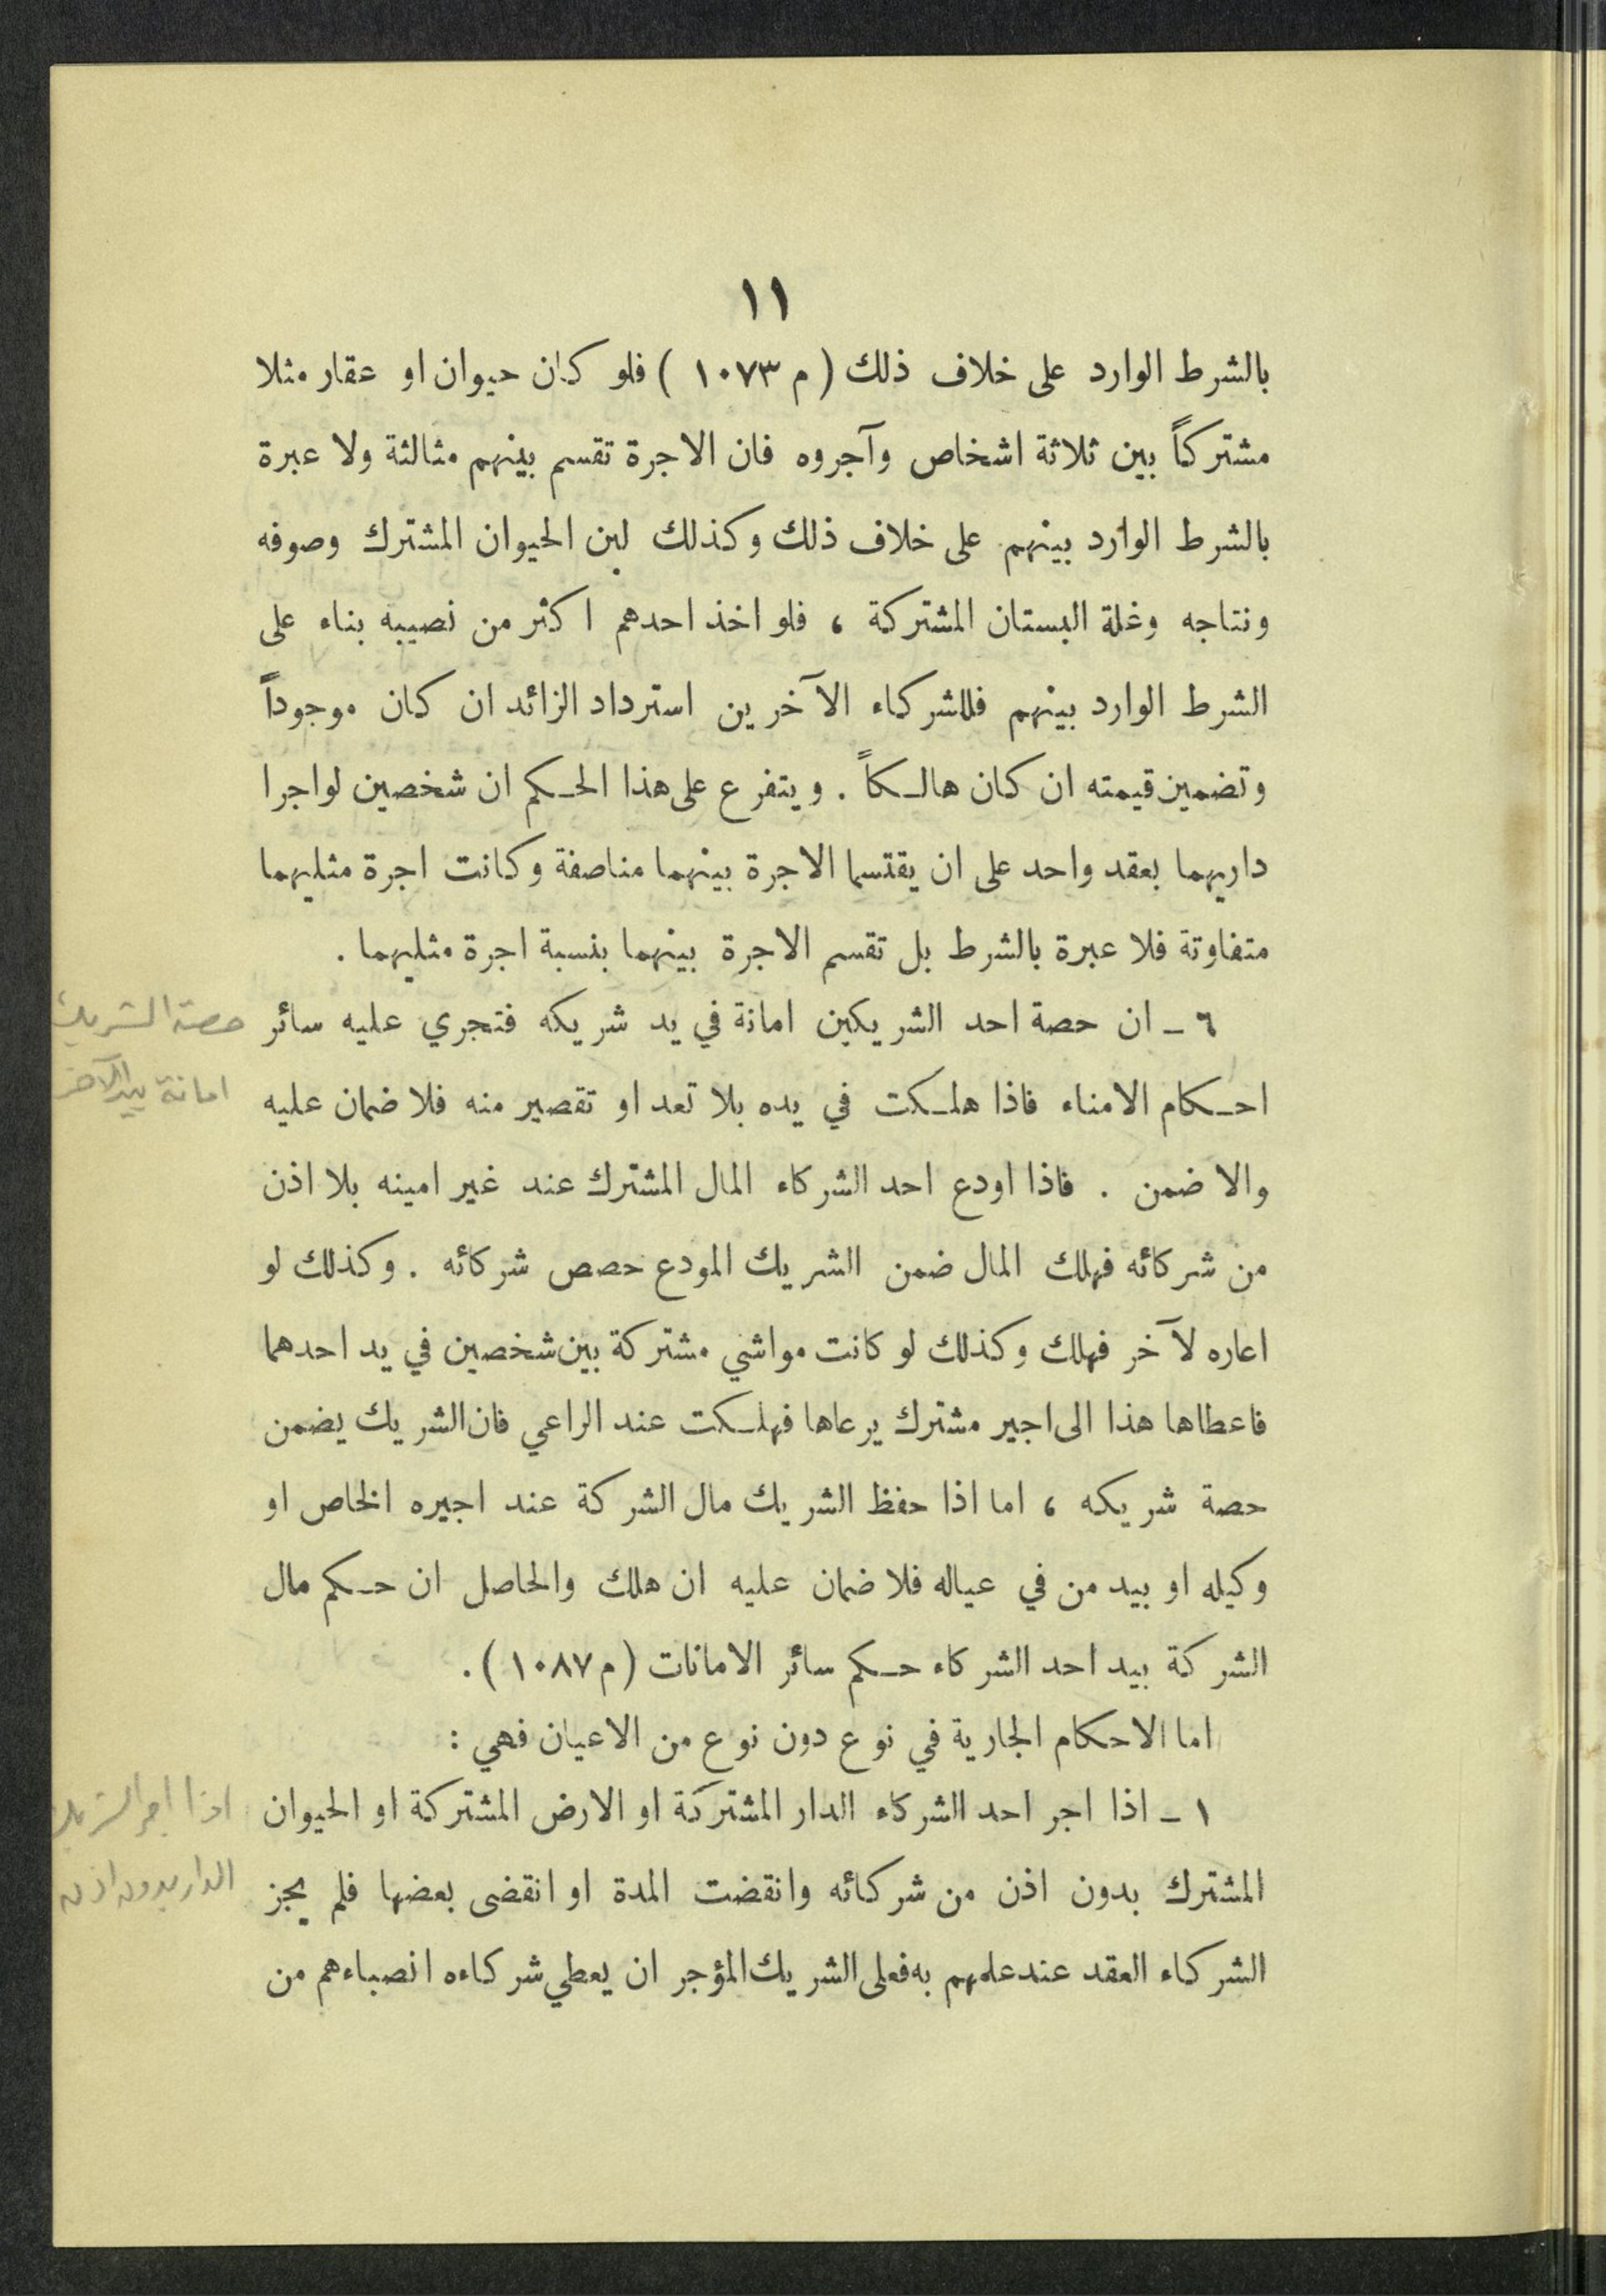 ١١
بالشرط الوارد على خلاف ذلك ( م ١٠٧٣ ) فلو كان حيوان او عقار مثلا
مشتركاً بين ثلاثة اشخاص وآجروه فان الاجرة تقسم بينهم مثالثة ولا عبرة
بالشرط الوارد بينهم على خلاف ذلك وكذلك لبن الحيوان المشترك وصوفه
ونتاجه وغلة البستان المشتركة ، فلو اخذ احدهم اكثر من نصيبه بناء على
الشرط الوارد بينهم فللشركاء الآخرين استرداد الزائد ان كان موجوداً
وتضمين قيمته ان كان هالكاً . ويتفرع على هذا الحكم ان شخصين لو اجرا
داريهما بعقد واحد على ان يقتسما الاجرة بينهما مناصفة وكانت اجرة مثليهما
متفاوتة فلا عبرة بالشرط بل تقسم الاجرة بينهما بنسبة اجرة مثليهما .
٦ - ان حصة احد الشريكين امانة في يد شريكه فتجري عليه سائر
حصة الشريك
احكام الامناء فاذا هلكت في يده بلا تعد او تقصير منه فلا ضمان عليه
امانة بيد الآخر
والا ضمن . فاذا اودع احد الشركاء المال المشترك عند غير امينه بلا اذن
من شركائه فهلك المال ضمن الشريك المودع حصص شركائه . وكذلك لو
اعاره لآخر فهلك وكذلك لو كانت مواشي مشتركة بين شخصين في يد احدهما
فاعطاها هذا الى اجير مشترك يرعاها فهلكت عند الراعي فان الشريك يضمن
حصة شريكه ، اما اذا حفظ الشريك مال الشركة عند اجيره الخاص او
وكيله او بيد من في عياله فلا ضمان عليه ان هلك والحاصل ان حكم مال
الشركة بيد احد الشركاء حكم سائر الامانات ( م ١٠٨٧ ) .
اما الاحكام الجارية في نوع دون نوع من الاعيان فهي :
١ - اذا اجر احد الشركاء الدار المشتركة او الارض المشتركة او الحيوان
اذا اجر الشريك
المشترك بدون اذن من شركائه وانقضت المدة او انقضى بعضها فلم يجز
الدار بدون اذن
الشركاء العقد عند علمهم به فعلى الشريك المؤجر ان يعطي شركاءه انصباءهم من